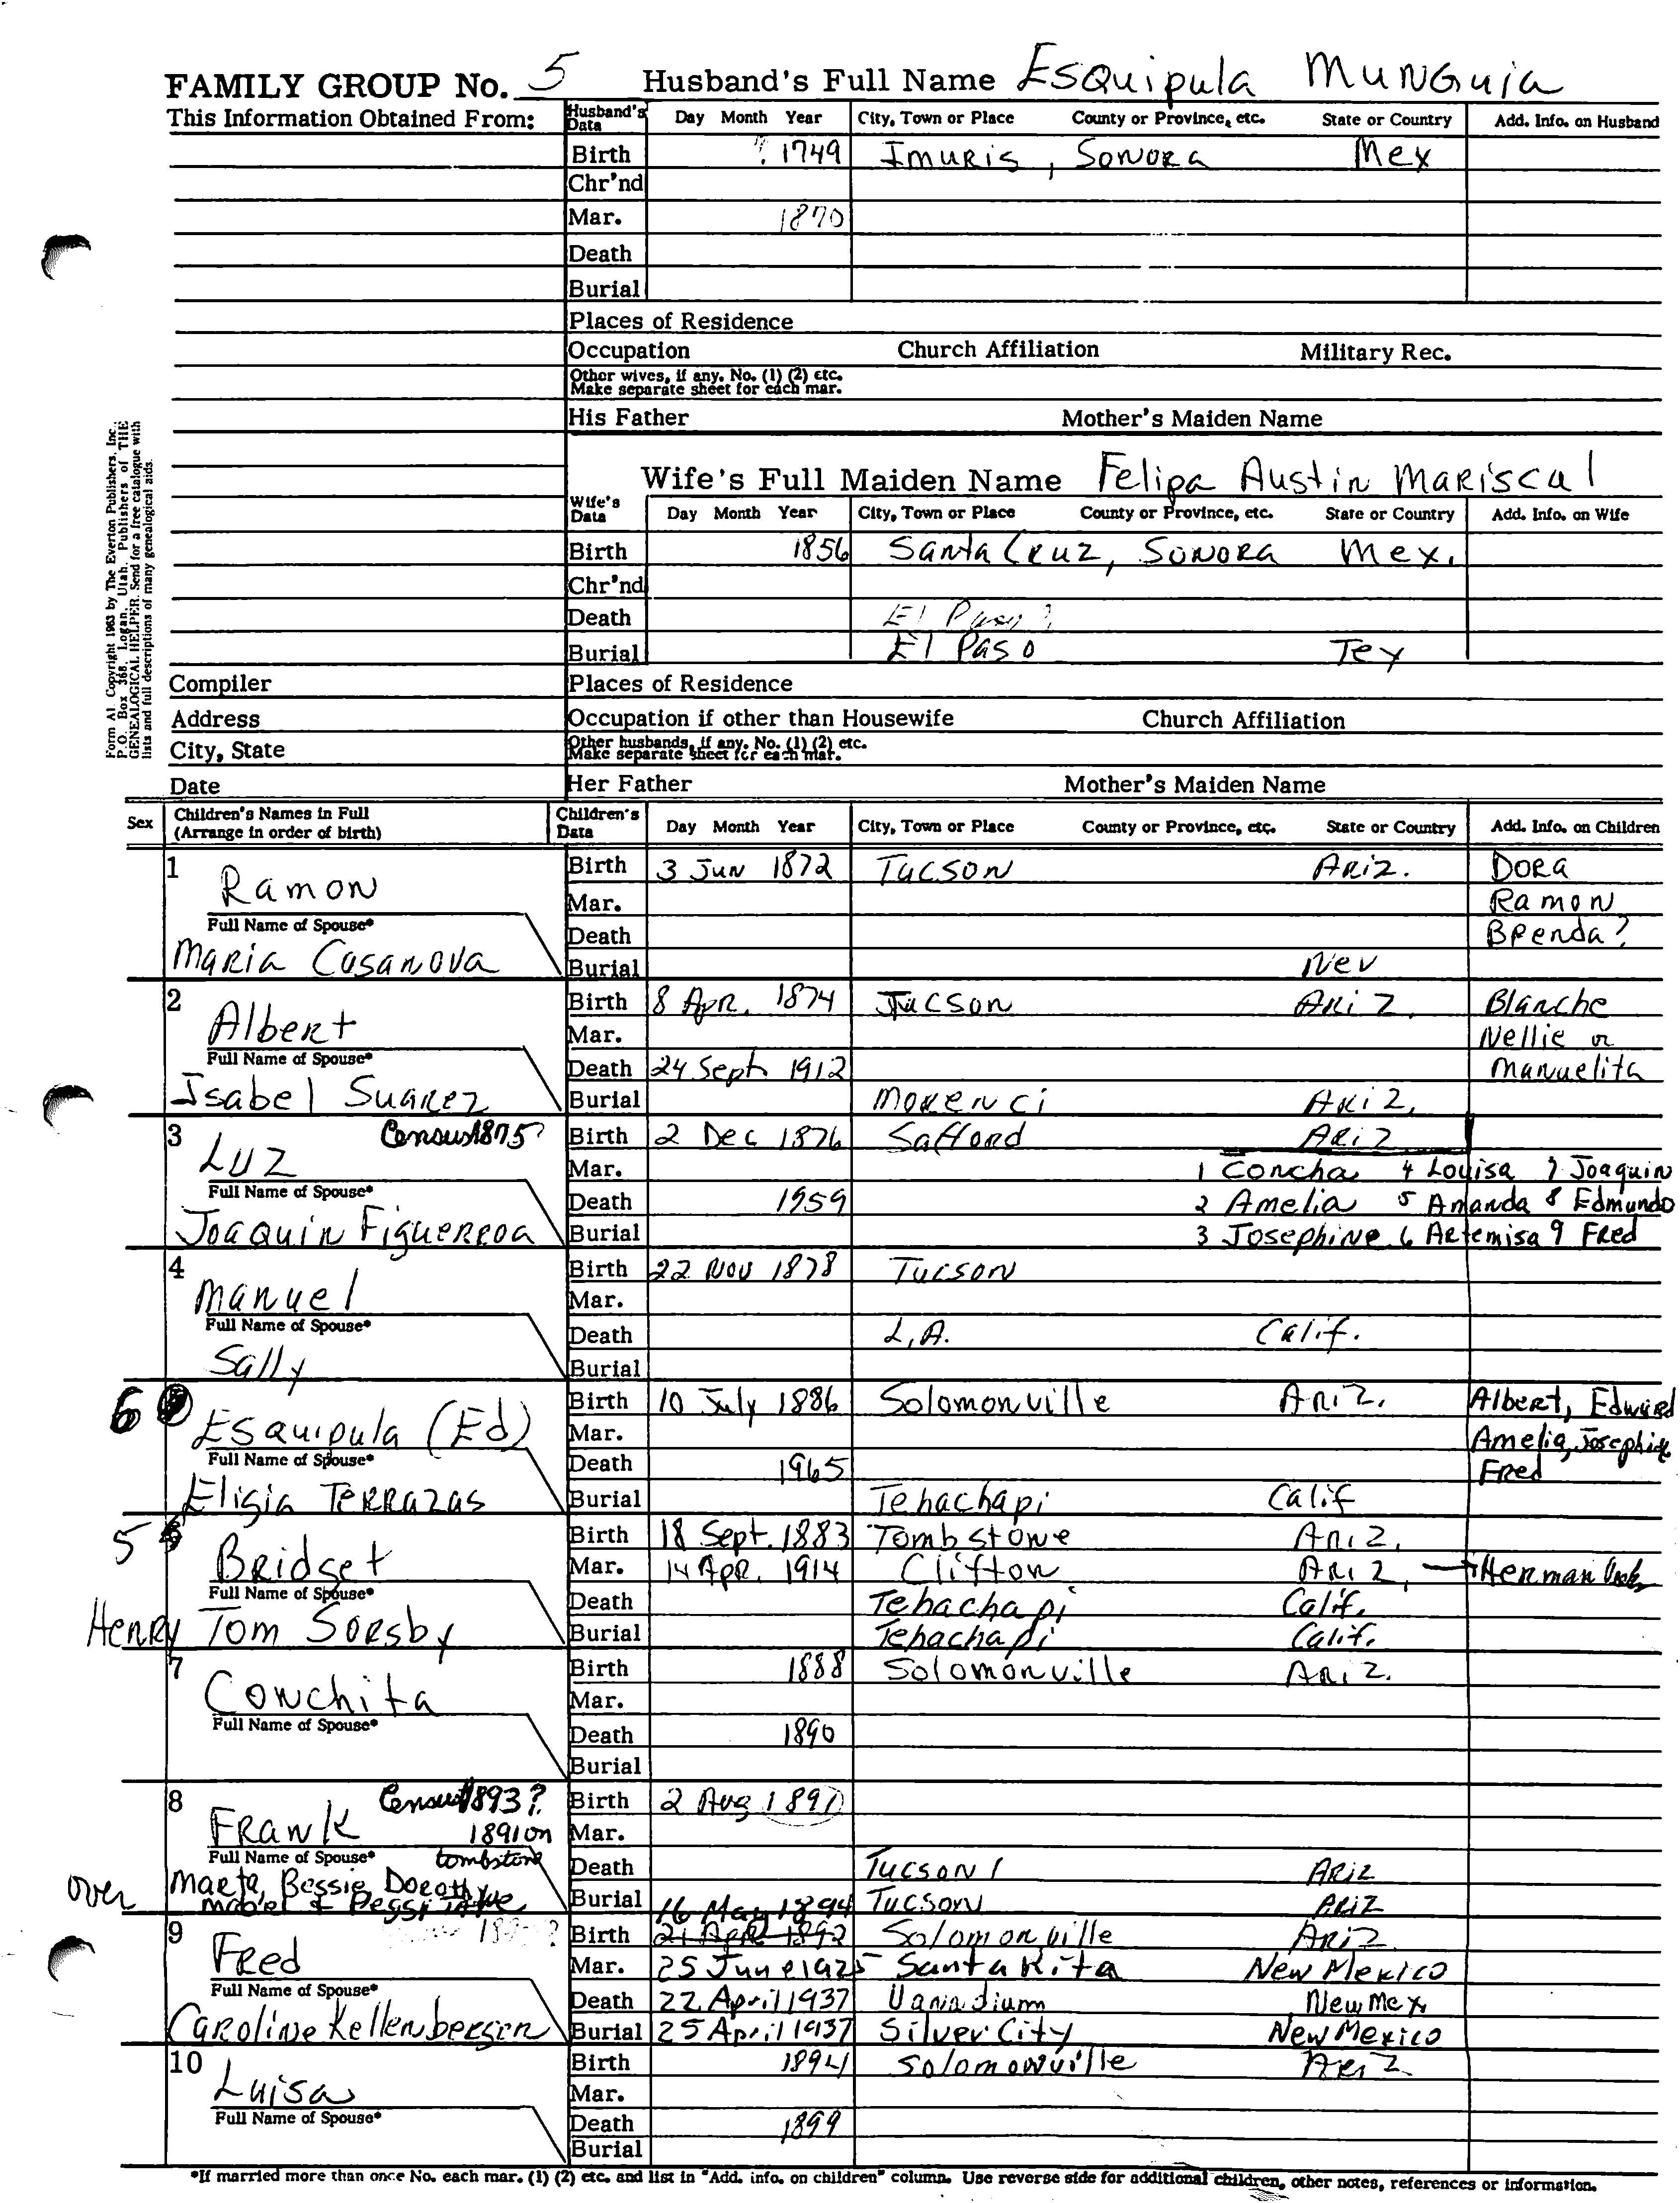 FAMILY GROUP No. 5 Husband's Full Name Esquipula Munguia
This Information Obtained From: Husband's Data Day Month Year City, Town or Place County or Province, etc. State or Country Add. Info. on Husband
Birth ? 1749 Imuris, Sonora Mex
Chr'nd
Mar. 1870
Death
Burial
Places of Residence
Occupation Church Affiliation Military Rec.
Other wives, if any. No. (1) (2) etc.
Make separate sheet for each mar.
His Father Mother's Maiden Name
Wife's Full Maiden Name Felipa Austin Mariscal
Wife's Data Day Month Year City, Town or Place County or Province, etc. State or Country Add. Info. on Wife
Birth 1856 Santa Cruz, Sonora Mex.
Chr'nd
Death El Paso ?
Burial El Paso Tex
Form A1 Copyright 1963 by The Everton Publishers, Inc.,
P.O. Box 368, Logan, Utah. Publishers of THE
GENEALOGICAL HELPER. Send for a free catalogue with
lists and full descriptions of many genealogical aids.
Compiler Places of Residence
Address Occupation if other than Housewife Church Affiliation
City, State Other husbands, if any. No. (1) (2) etc.
Make separate sheet for each mar.
Date Her Father Mother's Maiden Name
Sex Children's Names in Full Children's Data Day Month Year City, Town or Place County or Province, etc. State or Country Add. Info. on Children
(Arrange in order of birth)
1 Ramon Birth 3 Jun 1872 Tucson Ariz. Dora
Mar. Ramon
Full Name of Spouse* Death Brenda?
Maria Casanova Burial Nev
2 Albert Birth 8 Apr. 1874 Tucson Ariz. Blanche
Mar. Nellie or
Full Name of Spouse* Death 24 Sept 1912 Manuelita
Isabel Suarez Burial Morenci Ariz.
3 Luz Census 1875? Birth 2 Dec 1876 Safford Ariz
Mar. 1 Concha 4 Louisa 7 Joaquin
Full Name of Spouse* Death 1959 2 Amelia 5 Amanda 8 Edmundo
Joaquin Figuerroa Burial 3 Josephine 6 Artemisa 9 Fred
4 Manuel Birth 22 Nov 1878 Tucson
Mar.
Full Name of Spouse* Death L.A. Calif.
Sally Burial
6 Esquipula (Ed) Birth 10 July 1886 Solomonville Ariz. Albert, Edward
Mar. Amelia, Josephine
Full Name of Spouse* Death 1965 Fred
Eligia Terrazas Burial Tehachapi Calif
5 Bridget Birth 18 Sept. 1883 Tombstone Ariz.
Mar. 14 Apr. 1914 Clifton Ariz. Herman
Full Name of Spouse* Death Tehachapi Calif.
Henry Tom Sorsby Burial Tehachapi Calif.
7 Conchita Birth 1888 Solomonville Ariz.
Mar.
Full Name of Spouse* Death 1890
Burial
8 Frank Census 1893? Birth 2 Aug 1891
1891 on tombstone Mar.
Full Name of Spouse* Death Tucson Ariz
over Marta, Bessie Dorothy Burial Tucson Ariz
Mabel &
9 Fred Birth 16 May 1894 21 Apr 1892 Solomonville Ariz.
Mar. 25 June 1925 Santa Rita New Mexico
Full Name of Spouse* Death 22 April 1937 Vanadium New Mex
Caroline Kellenbergen Burial 25 April 1937 Silver City New Mexico
10 Luisa Birth 1894 Solomonville Ariz
Mar.
Full Name of Spouse* Death 1899
Burial
*If married more than once No. each mar. (1) (2) etc. and list in "Add. info. on children" column. Use reverse side for additional children, other notes, references or information.